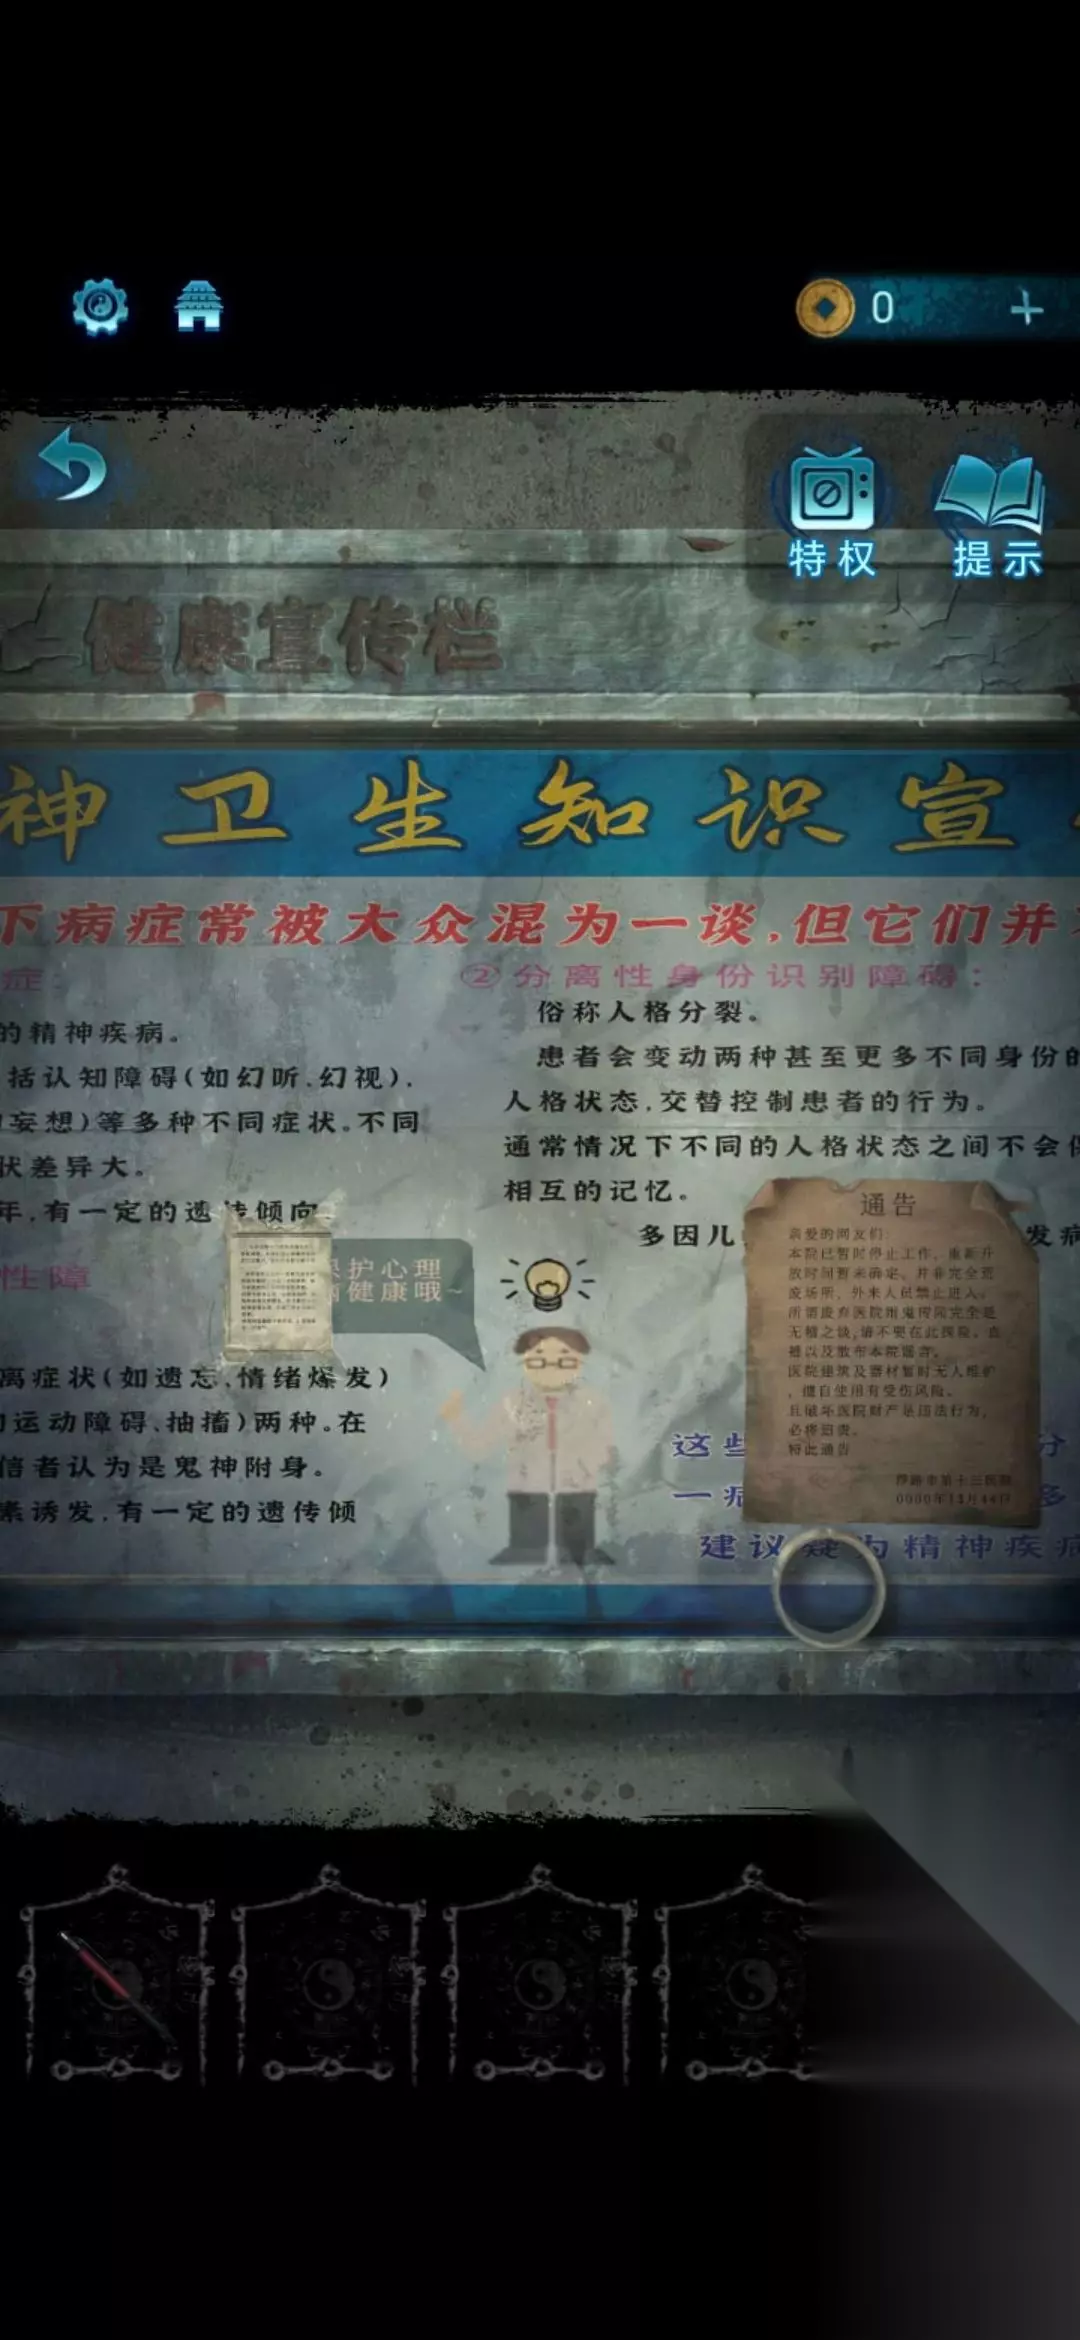 0
特权
提示
健康宣传栏
神卫生知识宣
下病症常被大众混为一谈,但它们并
症:
的精神疾病。
括认知障碍(如幻听、幻视)、
妄想)等多种不同症状。不同
状差异大。
年,有一定的遗传倾向
性障
离症状(如遗忘、情绪爆发)
运动障碍、抽搐)两种。在
信者认为是鬼神附身。
素诱发,有一定的遗传倾
②分离性身份识别障碍:
俗称人格分裂。
患者会变动两种甚至更多不同身份的
人格状态,交替控制患者的行为。
通常情况下不同的人格状态之间不会
相互的记忆。
多因儿
发病
护心理
健康哦~
通告
亲爱的网友们:
本院已暂时停止工作,重新开
放时间暂未确定。并非完全荒
废场所,外来人员禁止进入。
所谓废弃医院闹鬼传闻完全是
无稽之谈,请不要在此医院,直
播以及散布本院谣言。
医院建筑及器材暂时无人维护
,擅自使用有受伤风险。
且破坏医院财产是违法行为,
必将追责。
特此通告
市第十三医院
这些
分
一病
多
建议疑为精神疾病